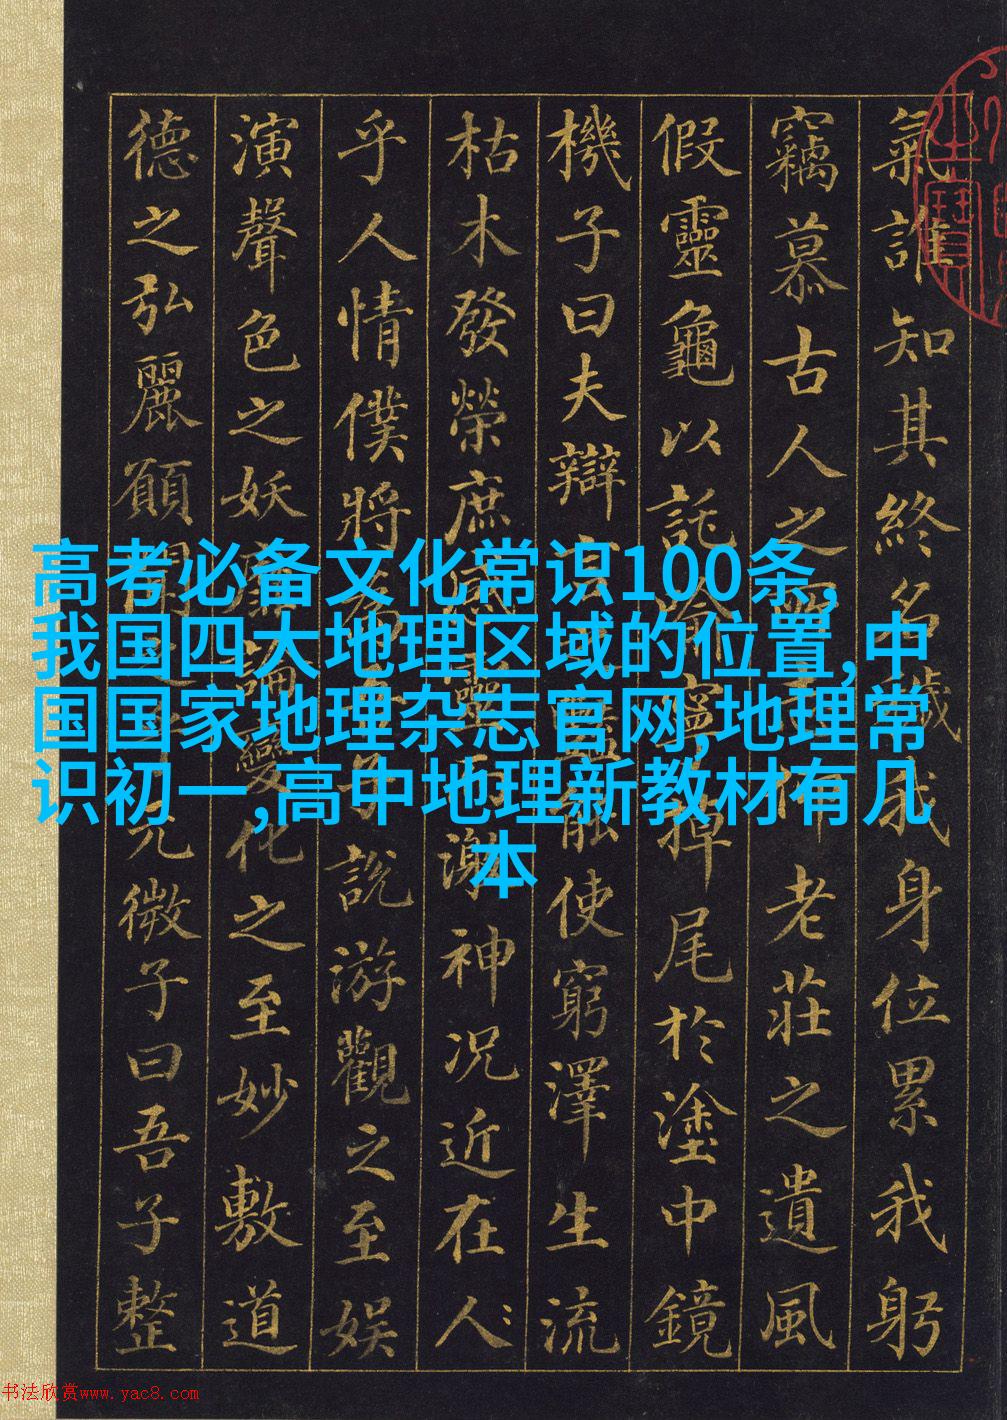 氣誰知其終名穢我身位累我躬
竊慕古人之所志仰老莊之遺風
假靈龜以託喻寧掉尾於塗中鏡
機子曰夫辯言之豔能使窮澤生流
枯木發榮庶感靈而激神況近在人
乎人情僕將為吾子說游觀之至娛
演聲色之妖靡論變化之至妙敷道
德之弘麗願聞之乎玄微子曰吾子整
高考必备文化常识100条,
我国四大地理区域的位置,中
国国家地理杂志官网,地理常
识初一,高中地理新教材有几
本
书法欣赏www.yac8.com